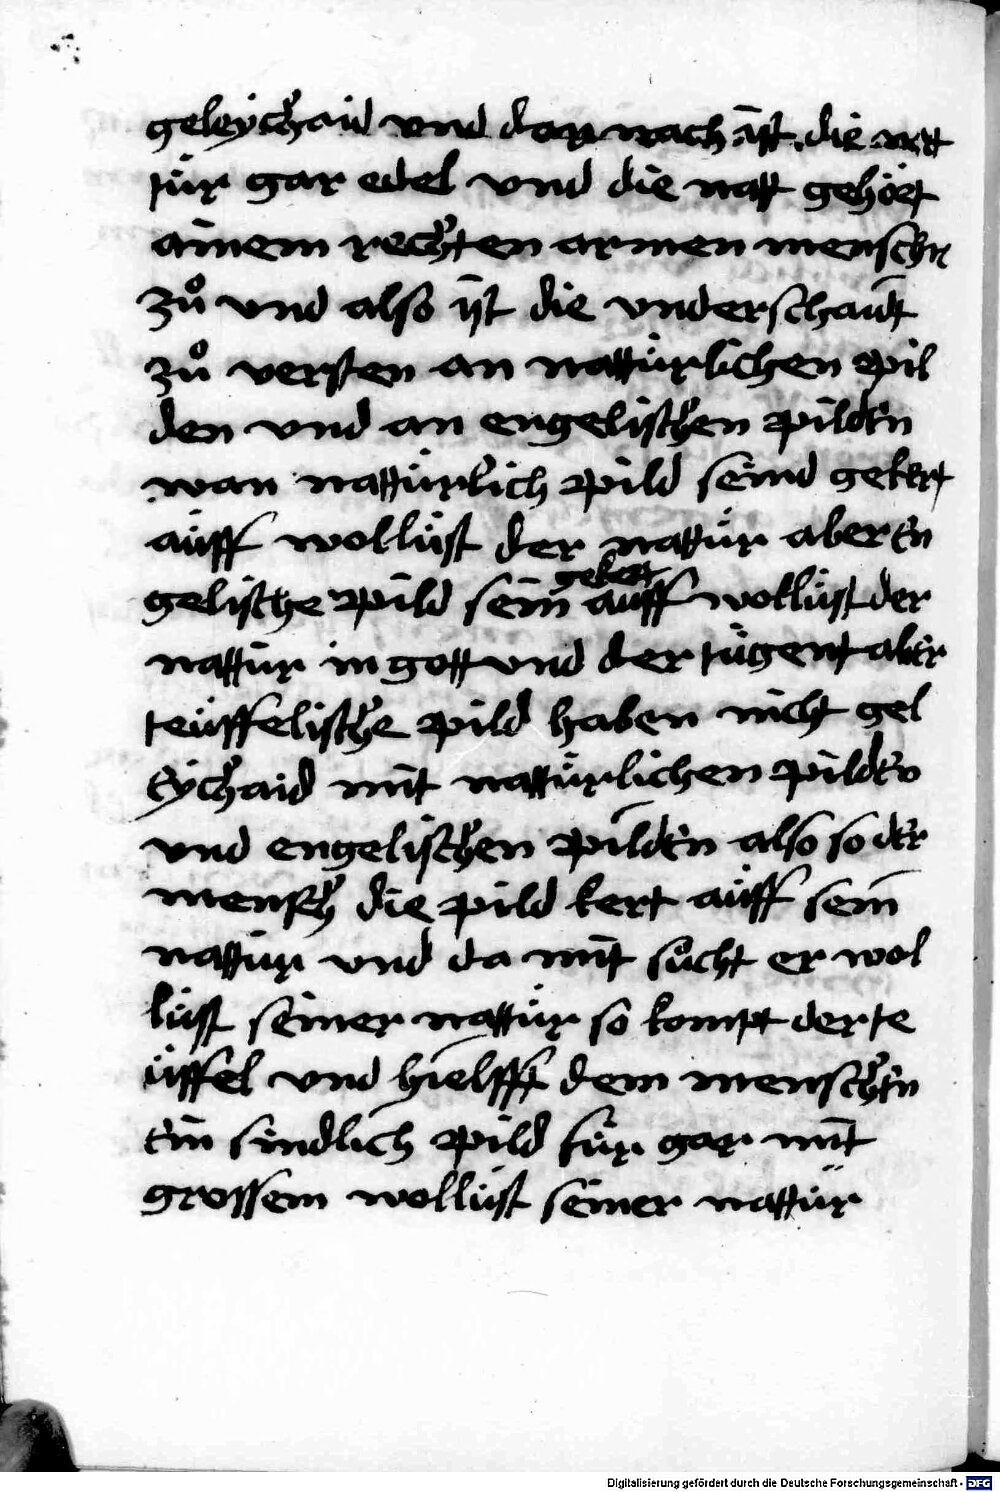 geleÿchaid vnd dar nach ist die nat
tür gar edel vnd die natt gehört
ainem rechten armen menschn
zů vnd also ist die vnderschaid
zů versten an nattürlichen pil
den vnd an engelischen pilden
wan nattürlich pild seind gekert
aüff wollüst der nattür aber en
gelische pild sein gekert aüff wollüst der
nattür in gott vnd der tügent aber
teüffelische pild haben nicht gel
eÿchaid mit nattürlichen pilden
vnd engelischen pilden also so der
mensch die pild kert aüff sein
nattür vnd da mit sücht er wol
lüst seiner nattür so kompt der te
üffel vnd hielfft dem menschen
ein sindlich pild für gar mit
grossem wollüst seiner nattür
Digitalisierung gefördert durch die Deutsche Forschungsgemeinschaft - DFG